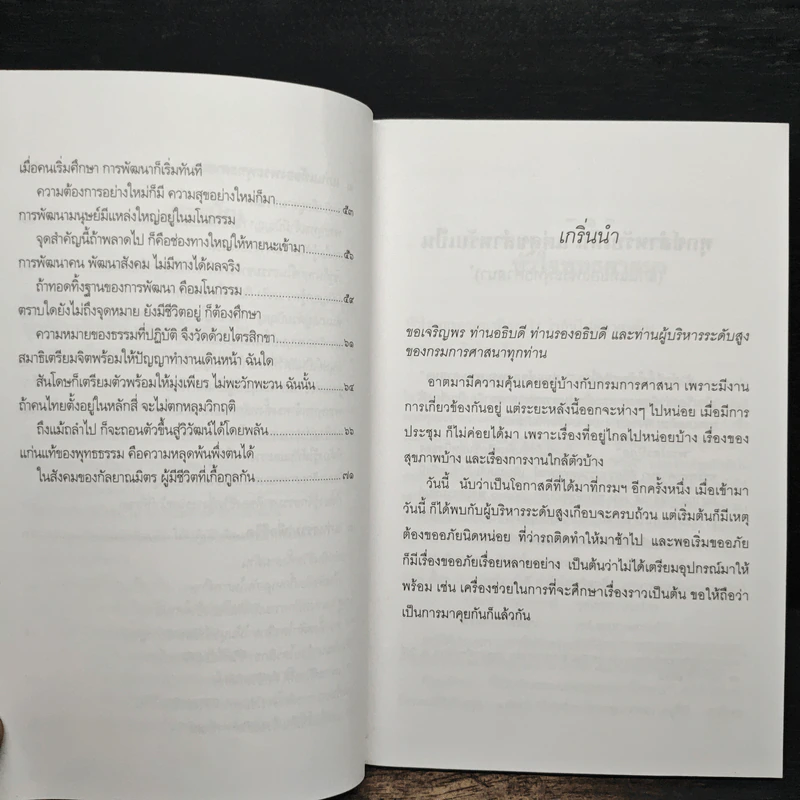 เมื่อคนเริ่มศึกษา การพัฒนาก็เริ่มทันที
ความต้องการอย่างใหม่ก็มี ความสุขอย่างใหม่ก็มา..... ๕๓
การพัฒนามนุษย์มีแหล่งใหญ่อยู่ในมโนกรรม
จุดสำคัญนี้ถ้าพลาดไป ก็คือช่องทางใหญ่ให้หายนะเข้ามา..... ๕๖
การพัฒนาคน พัฒนาสังคม ไม่มีทางได้ผลจริง
ถ้าทอดทิ้งฐานของการพัฒนา คือมโนกรรม..... ๕๙
ตราบใดยังไม่ถึงจุดหมาย ยังมีชีวิตอยู่ ก็ต้องศึกษา
ความหมายของธรรมที่ปฏิบัติ จึงวัดด้วยไตรสิกขา..... ๖๑
สมาธิเตรียมจิตพร้อมให้ปัญญาทำงานเดินหน้า ฉันใด
สันโดษก็เตรียมตัวพร้อมให้มุ่งเพียร ไม่พะวักพะวน ฉันนั้น ..... ๖๔
ถ้าคนไทยตั้งอยู่ในหลักสี่ จะไม่ตกหลุมวิกฤติ
ถึงแม้ถลำไป ก็จะถอนตัวขึ้นสู่วิวัฒน์ได้โดยพลัน ..... ๖๖
แก่นแท้ของพุทธธรรม คือความหลุดพ้นพึ่งตนได้
ในสังคมของกัลยาณมิตร ผู้มีชีวิตที่เกื้อกูลกัน ..... ๗๑
เกริ่นนำ
ขอเจริญพร ท่านอธิบดี ท่านรองอธิบดี และท่านผู้บริหารระดับสูง
ของกรมการศาสนาทุกท่าน
อาตมามีความคุ้นเคยอยู่บ้างกับกรมการศาสนา เพราะมีงาน
การเกี่ยวข้องกันอยู่ แต่ระยะหลังนี้ออกจะห่างๆ ไปหน่อย เมื่อมีการ
ประชุม ก็ไม่ค่อยได้มา เพราะเรื่องที่อยู่ไกลไปหน่อยบ้าง เรื่องของ
สุขภาพบ้าง และเรื่องการงานใกล้ตัวบ้าง
วันนี้ นับว่าเป็นโอกาสดีที่ได้มาที่กรมฯ อีกครั้งหนึ่ง เมื่อเข้ามา
วันนี้ ก็ได้พบกับผู้บริหารระดับสูงเกือบจะครบถ้วน แต่เริ่มต้นก็มีเหตุ
ต้องขออภัยนิดหน่อย ที่ว่ารถติดทำให้มาช้าไป และพอเริ่มขออภัย
ก็มีเรื่องขออภัยเรื่อยหลายอย่าง เป็นต้นว่าไม่ได้เตรียมอุปกรณ์มาให้
พร้อม เช่น เครื่องช่วยในการที่จะศึกษาเรื่องราวเป็นต้น ขอให้ถือว่า
เป็นการมาคุยกันก็แล้วกัน